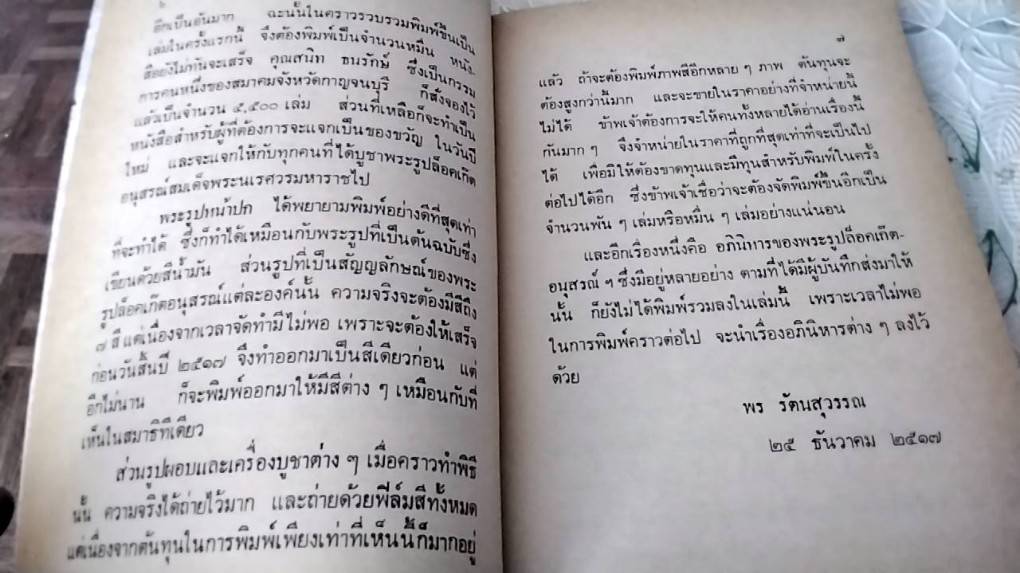 ๖
อีกเป็นอันมาก ฉะนั้นในคราวรวบรวมพิมพ์ขึ้นเป็น
เล่มในครั้งแรกนี้ จึงต้องพิมพ์เป็นจำนวนหมื่น หนัง-
สือยังไม่ทันจะเสร็จ คุณสนิท ธนรักษ์ ซึ่งเป็นกรรม
การคนหนึ่งของสมาคมจังหวัดกาญจนบุรี ก็สั่งจองไว้
แล้วเป็นจำนวน ๕,๕๐๐ เล่ม ส่วนที่เหลือก็จะทำเป็น
หนังสือสำหรับผู้ที่ต้องการจะแจกเป็นของขวัญ ในวันปี
ใหม่ และจะแจกให้กับทุกคนที่ได้บูชาพระรูปล็อคเกิต
อนุสรณ์สมเด็จพระนเรศวรมหาราชไป
พระรูปหน้าปก ได้พยายามพิมพ์อย่างดีที่สุดเท่า
ที่จะทำได้ ซึ่งก็ทำได้เหมือนกับพระรูปที่เป็นต้นฉบับซึ่ง
เขียนด้วยสีน้ำมัน ส่วนรูปที่เป็นสัญญลักษณ์ของพระ
รูปล็อคเก็ตอนุสรณ์แต่ละองค์นั้น ความจริงจะต้องมีสีถึง
๗ สี แต่เนื่องจากเวลาจัดทำมีไม่พอ เพราะจะต้องให้เสร็จ
ก่อนวันสิ้นปี ๒๕๑๗ จึงทำออกมาเป็นสีเดียวก่อน แต่
อีกไม่นาน ก็จะพิมพ์ออกมาให้มีสีต่าง ๆ เหมือนกับที่
เห็นในสมาธิทีเดียว
ส่วนรูปผอบและเครื่องบูชาต่าง ๆ เมื่อคราวทำพิธี
นั้น ความจริงได้ถ่ายไว้มาก และถ่ายด้วยฟิล์มสีทั้งหมด
แต่เนื่องจากต้นทุนในการพิมพ์เพียงเท่าที่เห็นนี้ก็มากอยู่
๗
แล้ว ถ้าจะต้องพิมพ์ภาพสีอีกหลาย ๆ ภาพ ต้นทุนจะ
ต้องสูงกว่านี้มาก และจะขายในราคาอย่างที่จำหน่ายนี้
ไม่ได้ ข้าพเจ้าต้องการจะให้คนทั้งหลายได้อ่านเรื่องนี้
กันมาก ๆ จึงจำหน่ายในราคาที่ถูกที่สุดเท่าที่จะเป็นไป
ได้ เพื่อมิให้ต้องขาดทุนและมีทุนสำหรับพิมพ์ในครั้ง
ต่อไปได้อีก ซึ่งข้าพเจ้าเชื่อว่าจะต้องจัดพิมพ์ขึ้นอีกเป็น
จำนวนพัน ๆ เล่มหรือหมื่น ๆ เล่มอย่างแน่นอน
และอีกเรื่องหนึ่งคือ อภินิหารของพระรูปล็อคเก็ต-
อนุสรณ์ ฯ ซึ่งมีอยู่หลายอย่าง ตามที่ได้มีผู้บันทึกส่งมาให้
นั้น ก็ยังไม่ได้พิมพ์รวมลงในเล่มนี้ เพราะเวลาไม่พอ
ในการพิมพ์คราวต่อไป จะนำเรื่องอภินิหารต่าง ๆ ลงไว้
ด้วย
พร รัตนสุวรรณ
๒๕ ธันวาคม ๒๕๑๗